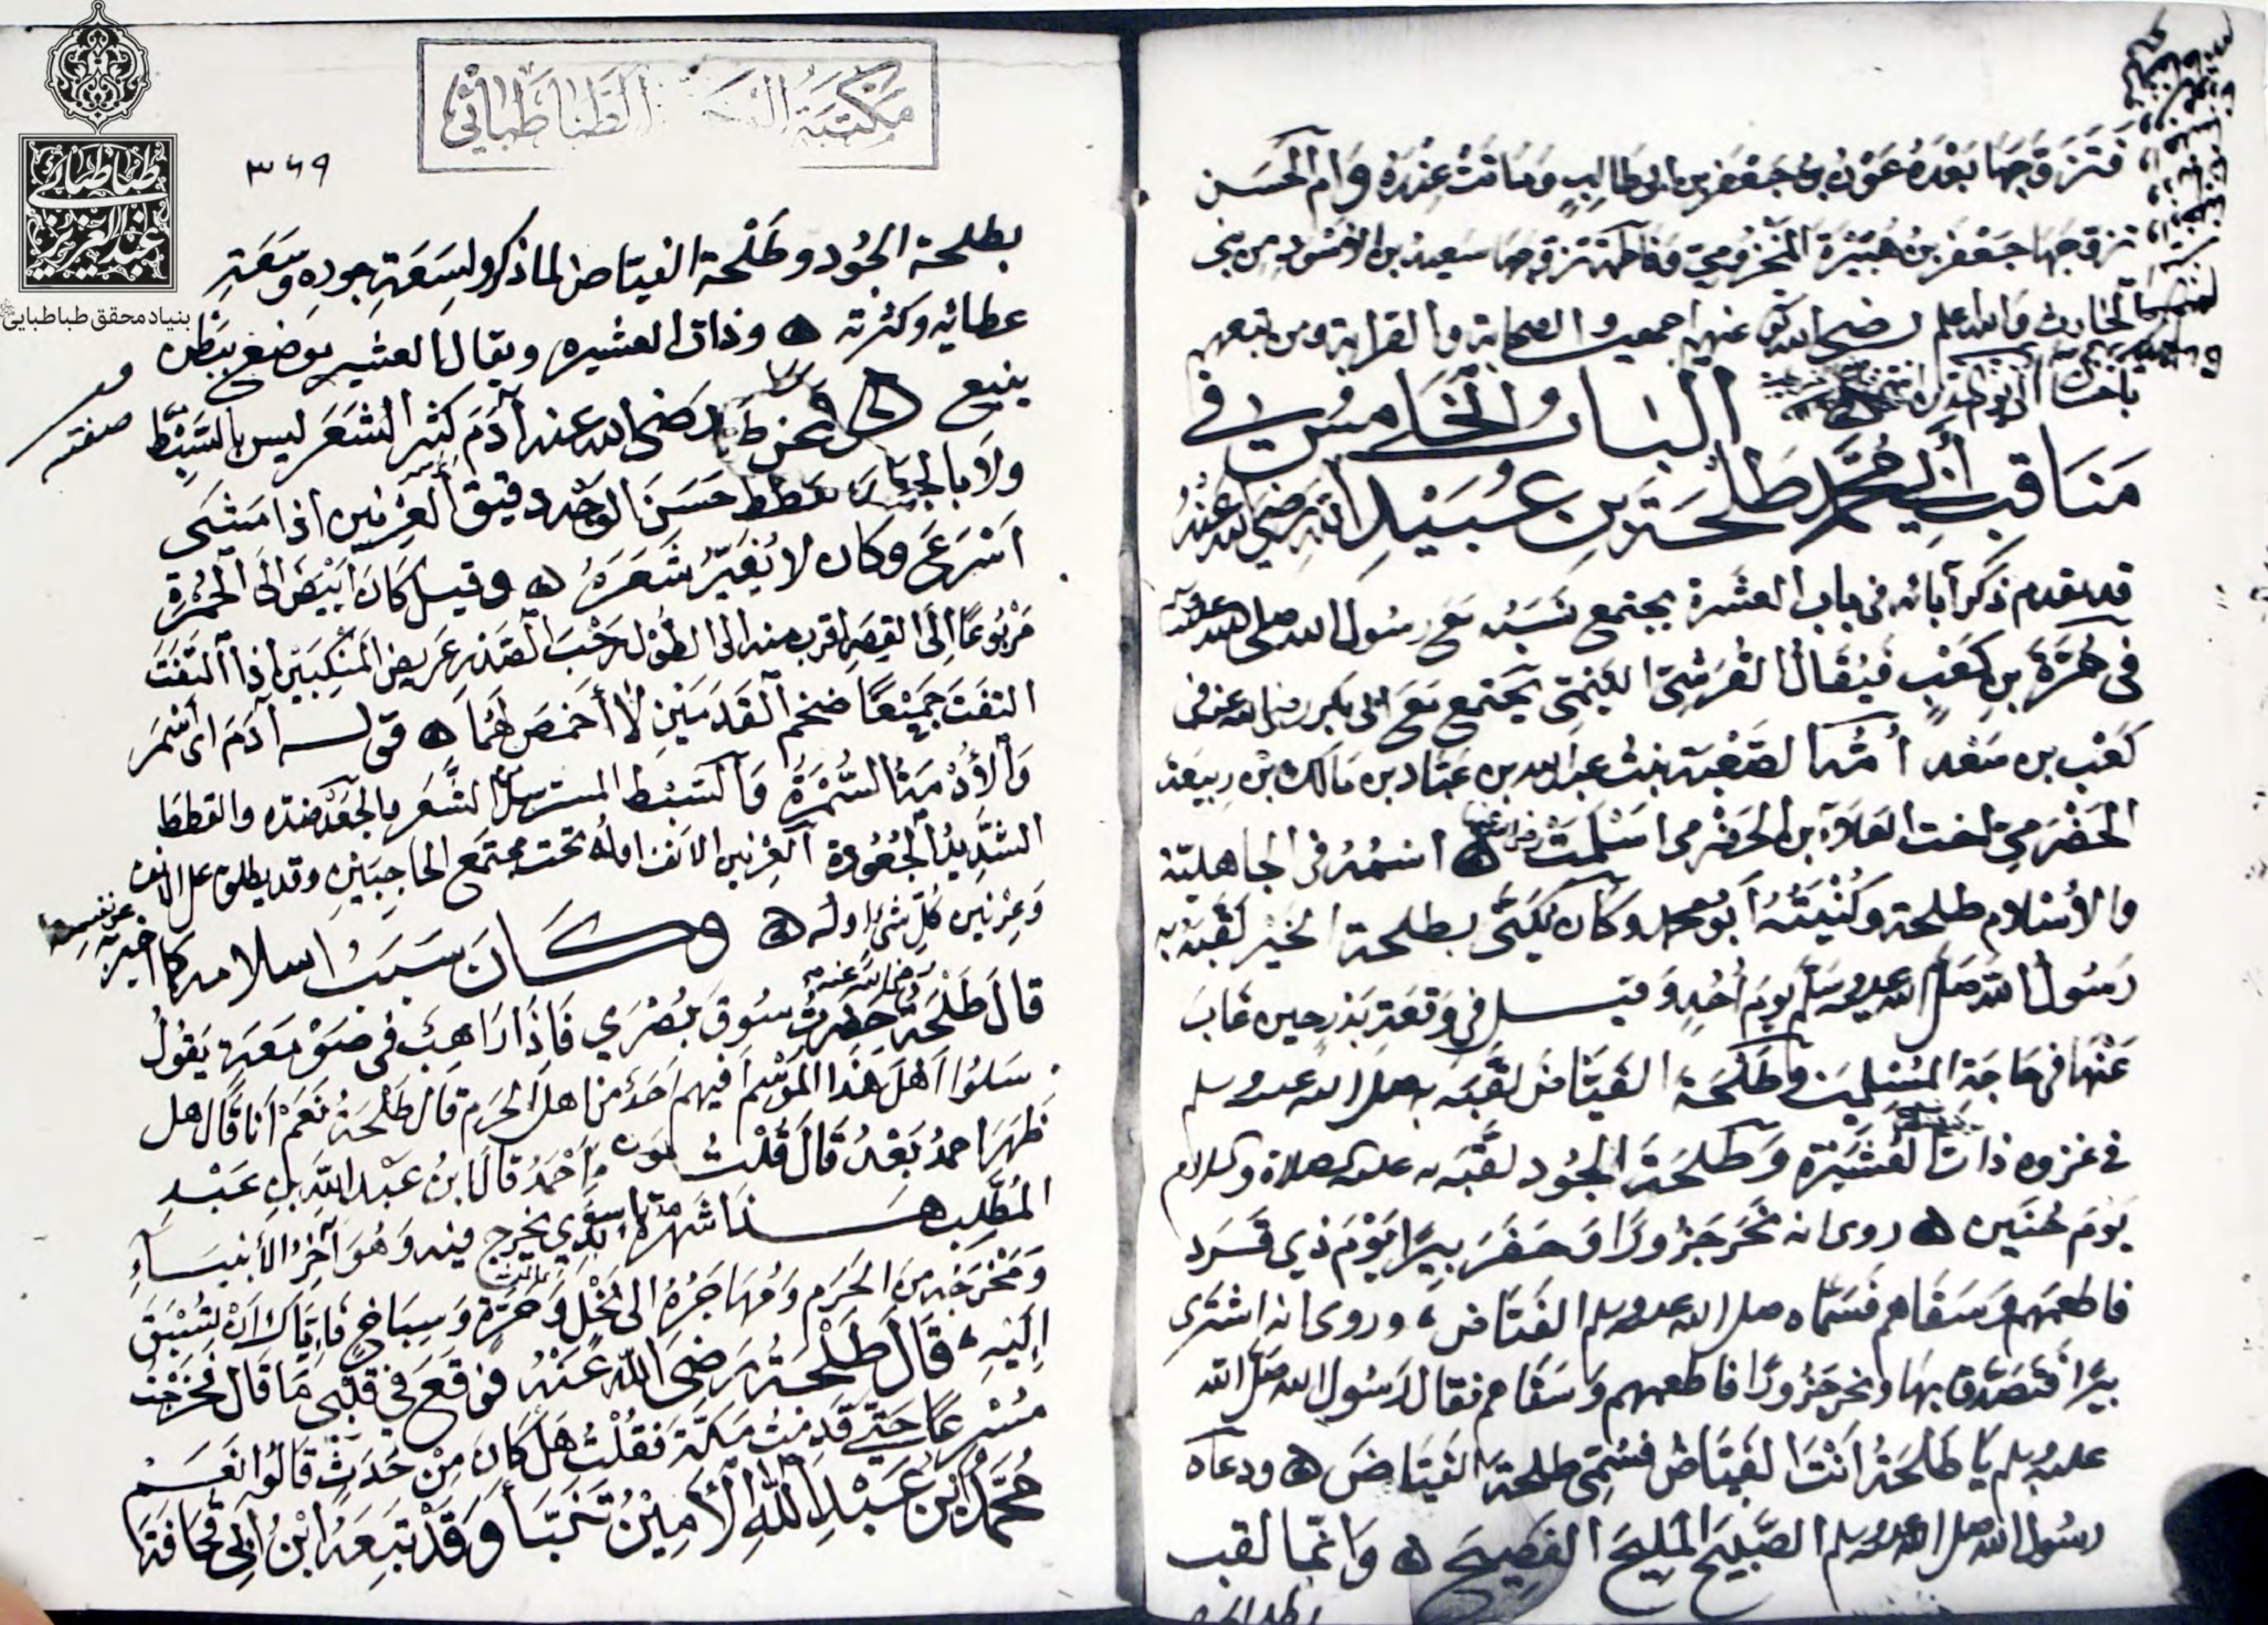 فَتَزَوَّجَهَا بَعْدَهُ عَوْنُ بْنُ جَعْفَرِ بن ابي طَالِبٍ وَمَاتَتْ عِنْدَهُ وَام الحَسَن
تزوجهَا جَعْفَر بن هُبَيْرَة المَخْزُومِي وَفَاطمة تزوجها سَعِيد بن الاسْوَد من بني
الحَارث وَالله اعلم رضي الله عنهم اجمعين والصحابة والقرابة ومن تبعهم
باحسان الى يوم الدين
الباب الخامس في
مَنَاقِبِ أَبي مُحَمَّد طَلْحَةَ بنِ عُبَيْدِ الله رَضِيَ الله عَنْهُ
قد تقدم ذكر آبائه في باب العشرة يجتمع نَسَبُه مَعَ رسُول الله صلى الله عليه وسلم
في مُرَّةَ بنِ كَعْبٍ فَيُقَالُ القُرَشِيّ التَيْمِيّ يَجْتَمع مَعَ ابي بكر رضي الله عنه في
كَعْب بن سَعْد أمّه الصَعْبَة بنت عبد الله بن عَبّاد بن مَالك بْن رَبيعة
الحَضْرَمِيّ اخت العَلَاء بن الحَضْرمي اسْلَمَتْ اسْمُهُ في الجاهليّة
والاسْلام طلحة وكُنْيَتُهُ ابو محمد وكَان يُكَنَّى بطلحة الخَيْر لَقَّبَهُ به
رَسُولُ الله صَلَّى الله عليه وسَلَّم يومَ اُحُدٍ وَقيل في وَقعَةِ بَدْر حين غَابَ
عَنْهَا في حَاجَةِ المُسْلِمينَ وَطَلحَة الفَيَّاض لقَّبَه به صلى الله عليه وسلم
في غزوه ذات العُشَيْرَة وَطَلحَة الجُود لقَّبَه به عليه الصلاة والسلام
يَومَ حُنَين روى انه نحَرَ جَزُورًا وَحَفَرَ بيرًا يَوْمَ ذي قَرَد
فاطعمهم وَسَقَاهم فَسَمَّاه صلى الله عليه وسلم الفَيَّاض، وروى انه اشترى
بيرًا فتَصَدَّق بهَا ونحر جَزُورًا فاطعمهم وَسَقَاهم فقال رَسُول الله صَلّى الله
عليه وسلم يَا طَلحَةُ انْتَ الفَيَّاضُ فَسُمِّيَ طلحةَ الفَيّاضَ ودعاه
رسُول الله صلى الله عليه وسلم الصَّبِيحَ المَلِيحَ الفَصِيحَ وَانّما لقب
مكتبة الطباطبائي
طباطبائي
عبد العزيز
بنیاد محقق طباطبایی
٣٦٩
بطلحة الجُود وطَلْحة الفيّاض لما ذكر ولسَعَةِ جودِه وسَعَةِ
عطائه وكثرته وذات العشيره ويقال العشير موضع بِبَطْن
ينبع
صفته
رَضي الله عنه آدَمَ كثير الشَعَر ليس بالسَّبْطِ
ولا بالجعد القَطط حَسَنَ الوَجْه دقيق العِرنين اذا مَشَى
اَسْرَعَ وكان لا يُغَيِّرُ شَعَرَهُ وقيل كَانَ ابْيَضَ الَى الحُمْرَةِ
مَرْبُوعًا الَى القِصَرِ اقرب منه الى الطُول رَحْبَ الصَدْر عَريض المَنْكِبَين اذا التَفَتَ
التفَتَ جَمِيْعًا ضخم القَدَمَيْنِ لا أخمَصَ لهُمَا قولُه آدَمَ اى أسْمَرَ
وَالأُدْمَةُ السُّمْرَةُ وَالسَّبْط المسترسل الشَّعَر والجَعْد ضدّه والقطط
الشَّديدُ الجُعُودة العِرْنين الانف اوله تحت مجتمع الحاجبَين وقد يطلق على الانف
وَعِرْنين كُلّ شَي اوله وكَانَ سَبَبُ اسلامه كما اخبر به عن نفسه
قالَ طَلْحَة رضي الله عنه حَضَرتُ سُوقَ بُصْرَي فَاذَا رَاهِب في صَوْمَعَة يَقُولُ
سَلُوا اَهْلَ هَذا المَوْسم اَفيهم اَحَدٌ من اهل الحَرَم قال طَلْحَةُ نَعَمْ انَا قَالَ هل
ظَهَرَ احمدُ بَعْدُ قَالَ قُلْتُ وَمَن اَحْمَدُ قالَ ابن عَبْد الله بن عَبْد
المُطَّلِب هَذَا شَهْرُهُ الذي يخرج فيه وَهُوَ آخِرُ الأنبيَاءِ
وَمَخْرَجُه مِنَ الحَرَم وَمُهَاجَرُهُ الى نَخْل وَحَرَّة وَسِبَاخٍ فَايّاكَ اَنْ تُسْبَقَ
اِلَيْهِ، قَالَ طَلْحَةُ رَضيَ اللهُ عَنْهُ فوقَعَ في قَلْبي مَا قَالَ فَخَرَجْتُ
مُسْرِعًا حَتّى قَدِمْتُ مَكّة فَقُلْتُ هَلْ كَانَ مِنْ حَدَثٍ قَالُوا نَعَم
مُحَمَّدُ بْنُ عَبْدِ اللهِ الأَمِيْنُ تَنَبَّأَ وَقَدْ تَبِعَهُ ابْنُ ابي قُحَافَةَ